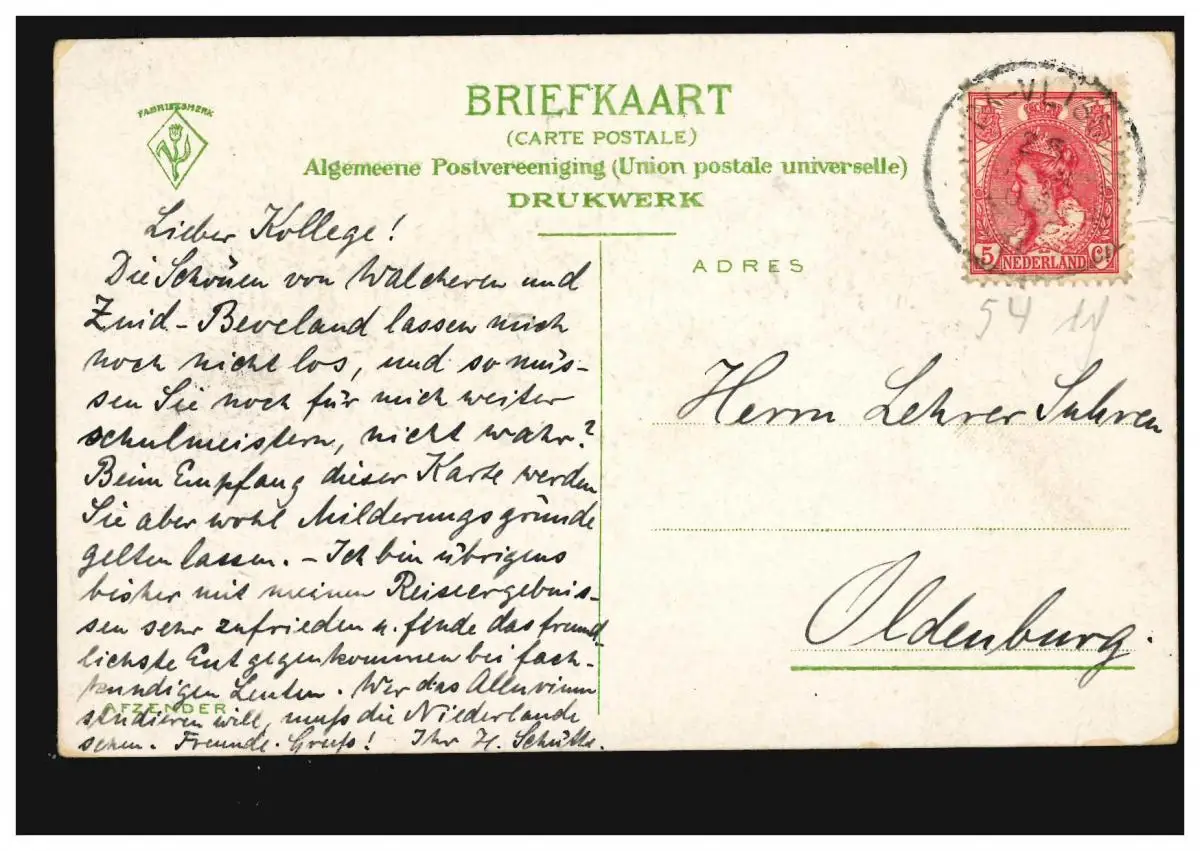 FABRIEKSMERK
BRIEFKAART
(CARTE POSTALE)
Algemeene Postvereeniging (Union postale universelle)
DRUKWERK
Lieber Kollege!
Die Schönen von Walcheren und
Zuid-Beveland lassen mich
noch nicht los, und so müs-
sen Sie noch für mich weiter
schulmeistern, nicht wahr?
Beim Empfang dieser Karte werden
Sie aber wohl Milderungsgründe
gelten lassen. - Ich bin übrigens
bisher mit meinen Reiseergebnis-
sen sehr zufrieden u. finde das freund
lichste Entgegenkommen bei fach-
kundigen Leuten. Wer das Alluvium
AFZENDER
studieren will, muß die Niederlande
sehen. Freundl. Gruß! Ihr H. Schütte.
VLISS
5 NEDERLAND Ct
ADRES
54
Herrn Lehrer Suhren
Oldenburg.